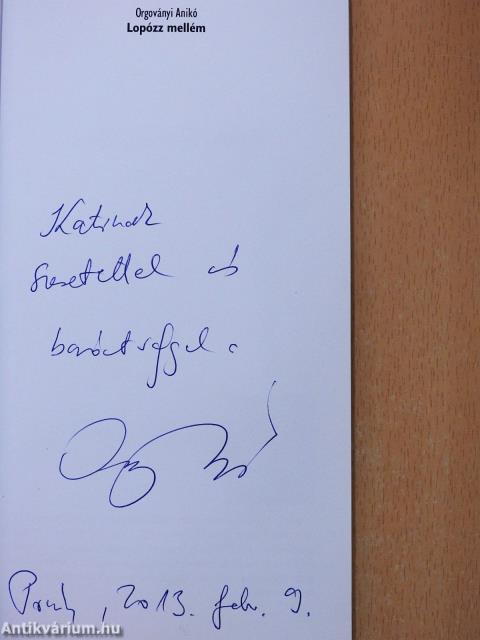 Orgoványi Anikó
Lopózz mellém
Katinak
szeretettel és
barátsággal.
, 2013. feb. 9.
Antikvárium.hu